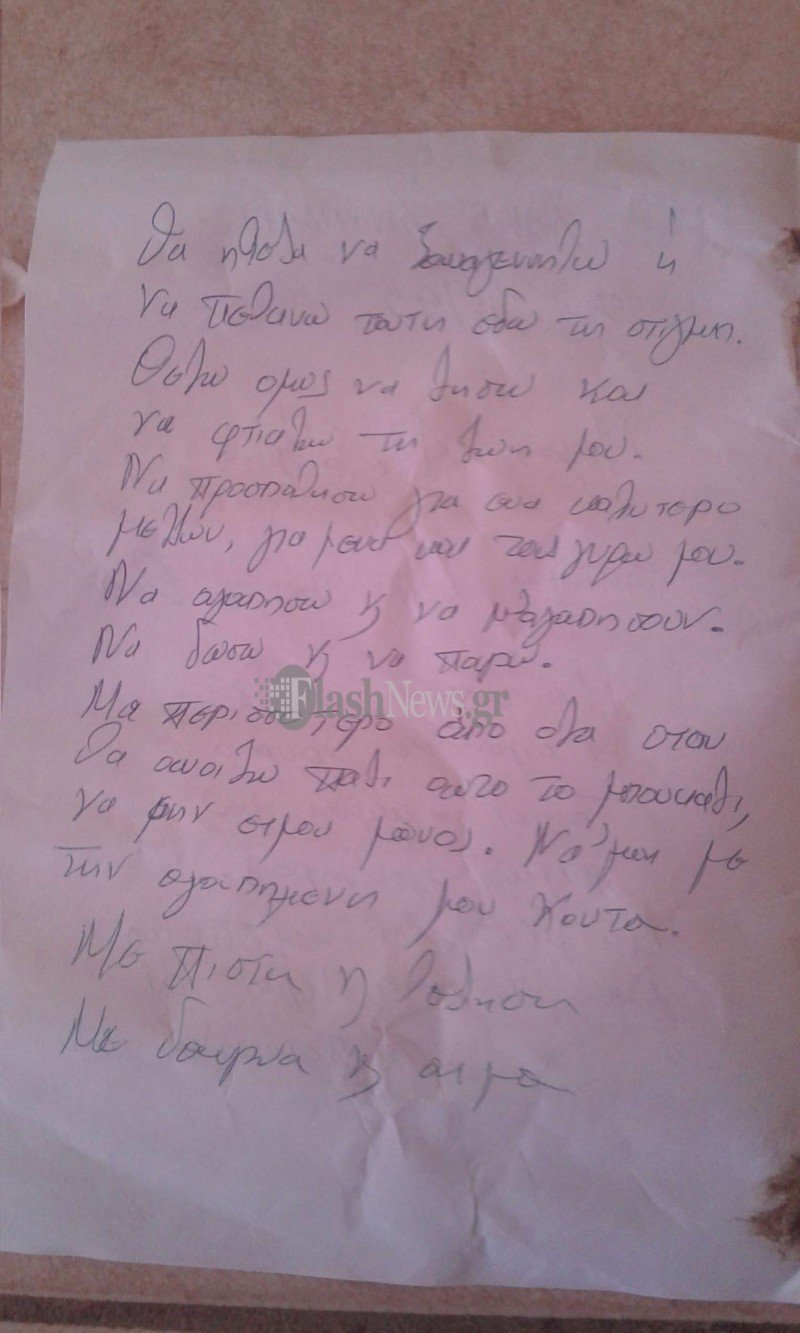 Θα ηθελα να ξαναγεννηθω ή
να πεθανω τουτη εδω τη στιγμη.
Θελω ομως να ζησω και
να φτιαξω τη ζωη μου.
Να προσπαθησω για ενα καλυτερο
μελλον, για μενα και τους γυρω μου.
Να αγαπησω κ να μ'αγαπησουν.
Να δωσω κ να παρω.
FlashNews.gr
Μα περισσοτερο απο ολα οταν
θα ανοιξω παλι αυτο το μπουκαλι,
να μην ειμαι μονος. Να'μαι με
την αγαπημενη μου
Με πιστη κ θεληση
Με δακρυα κ αιμα